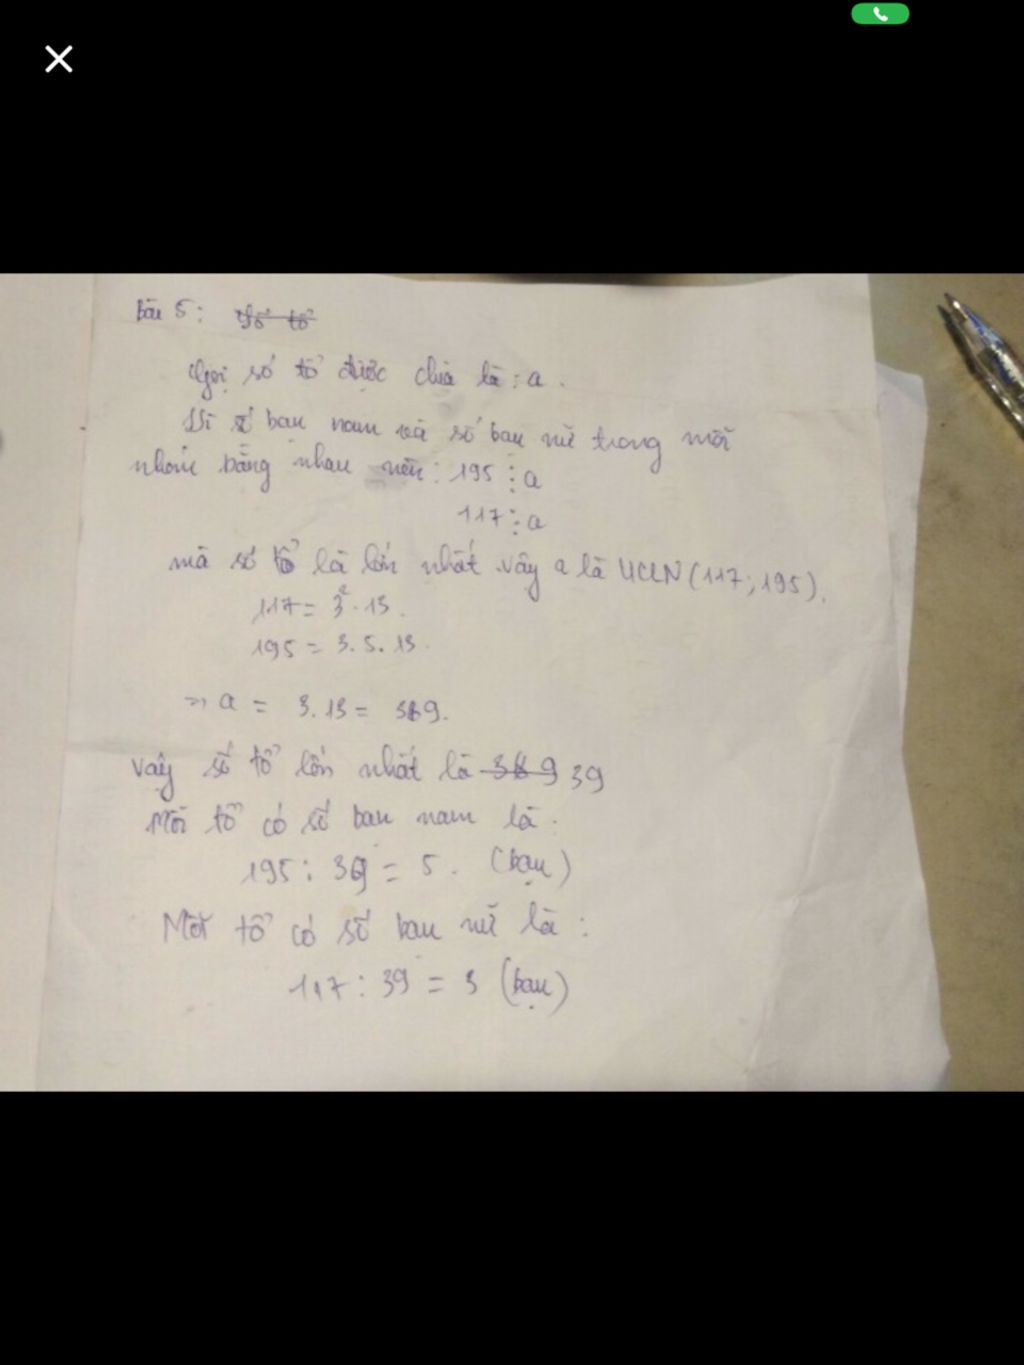 Bài 5: Số tổ
Gọi số tổ được chia là: a.
Vì số bạn nam và số bạn nữ trong mỗi
nhóm bằng nhau nên: 195 ⋮ a
117 ⋮ a
mà số tổ là lớn nhất vậy a là ƯCLN (117; 195).
117 = 3² . 13.
195 = 3. 5. 13.
=> a = 3. 13 = 39.
Vậy số tổ lớn nhất là 39
Mỗi tổ có số bạn nam là.
195 : 39 = 5. (bạn)
Mỗi tổ có số bạn nữ là :
117 : 39 = 3 (bạn)